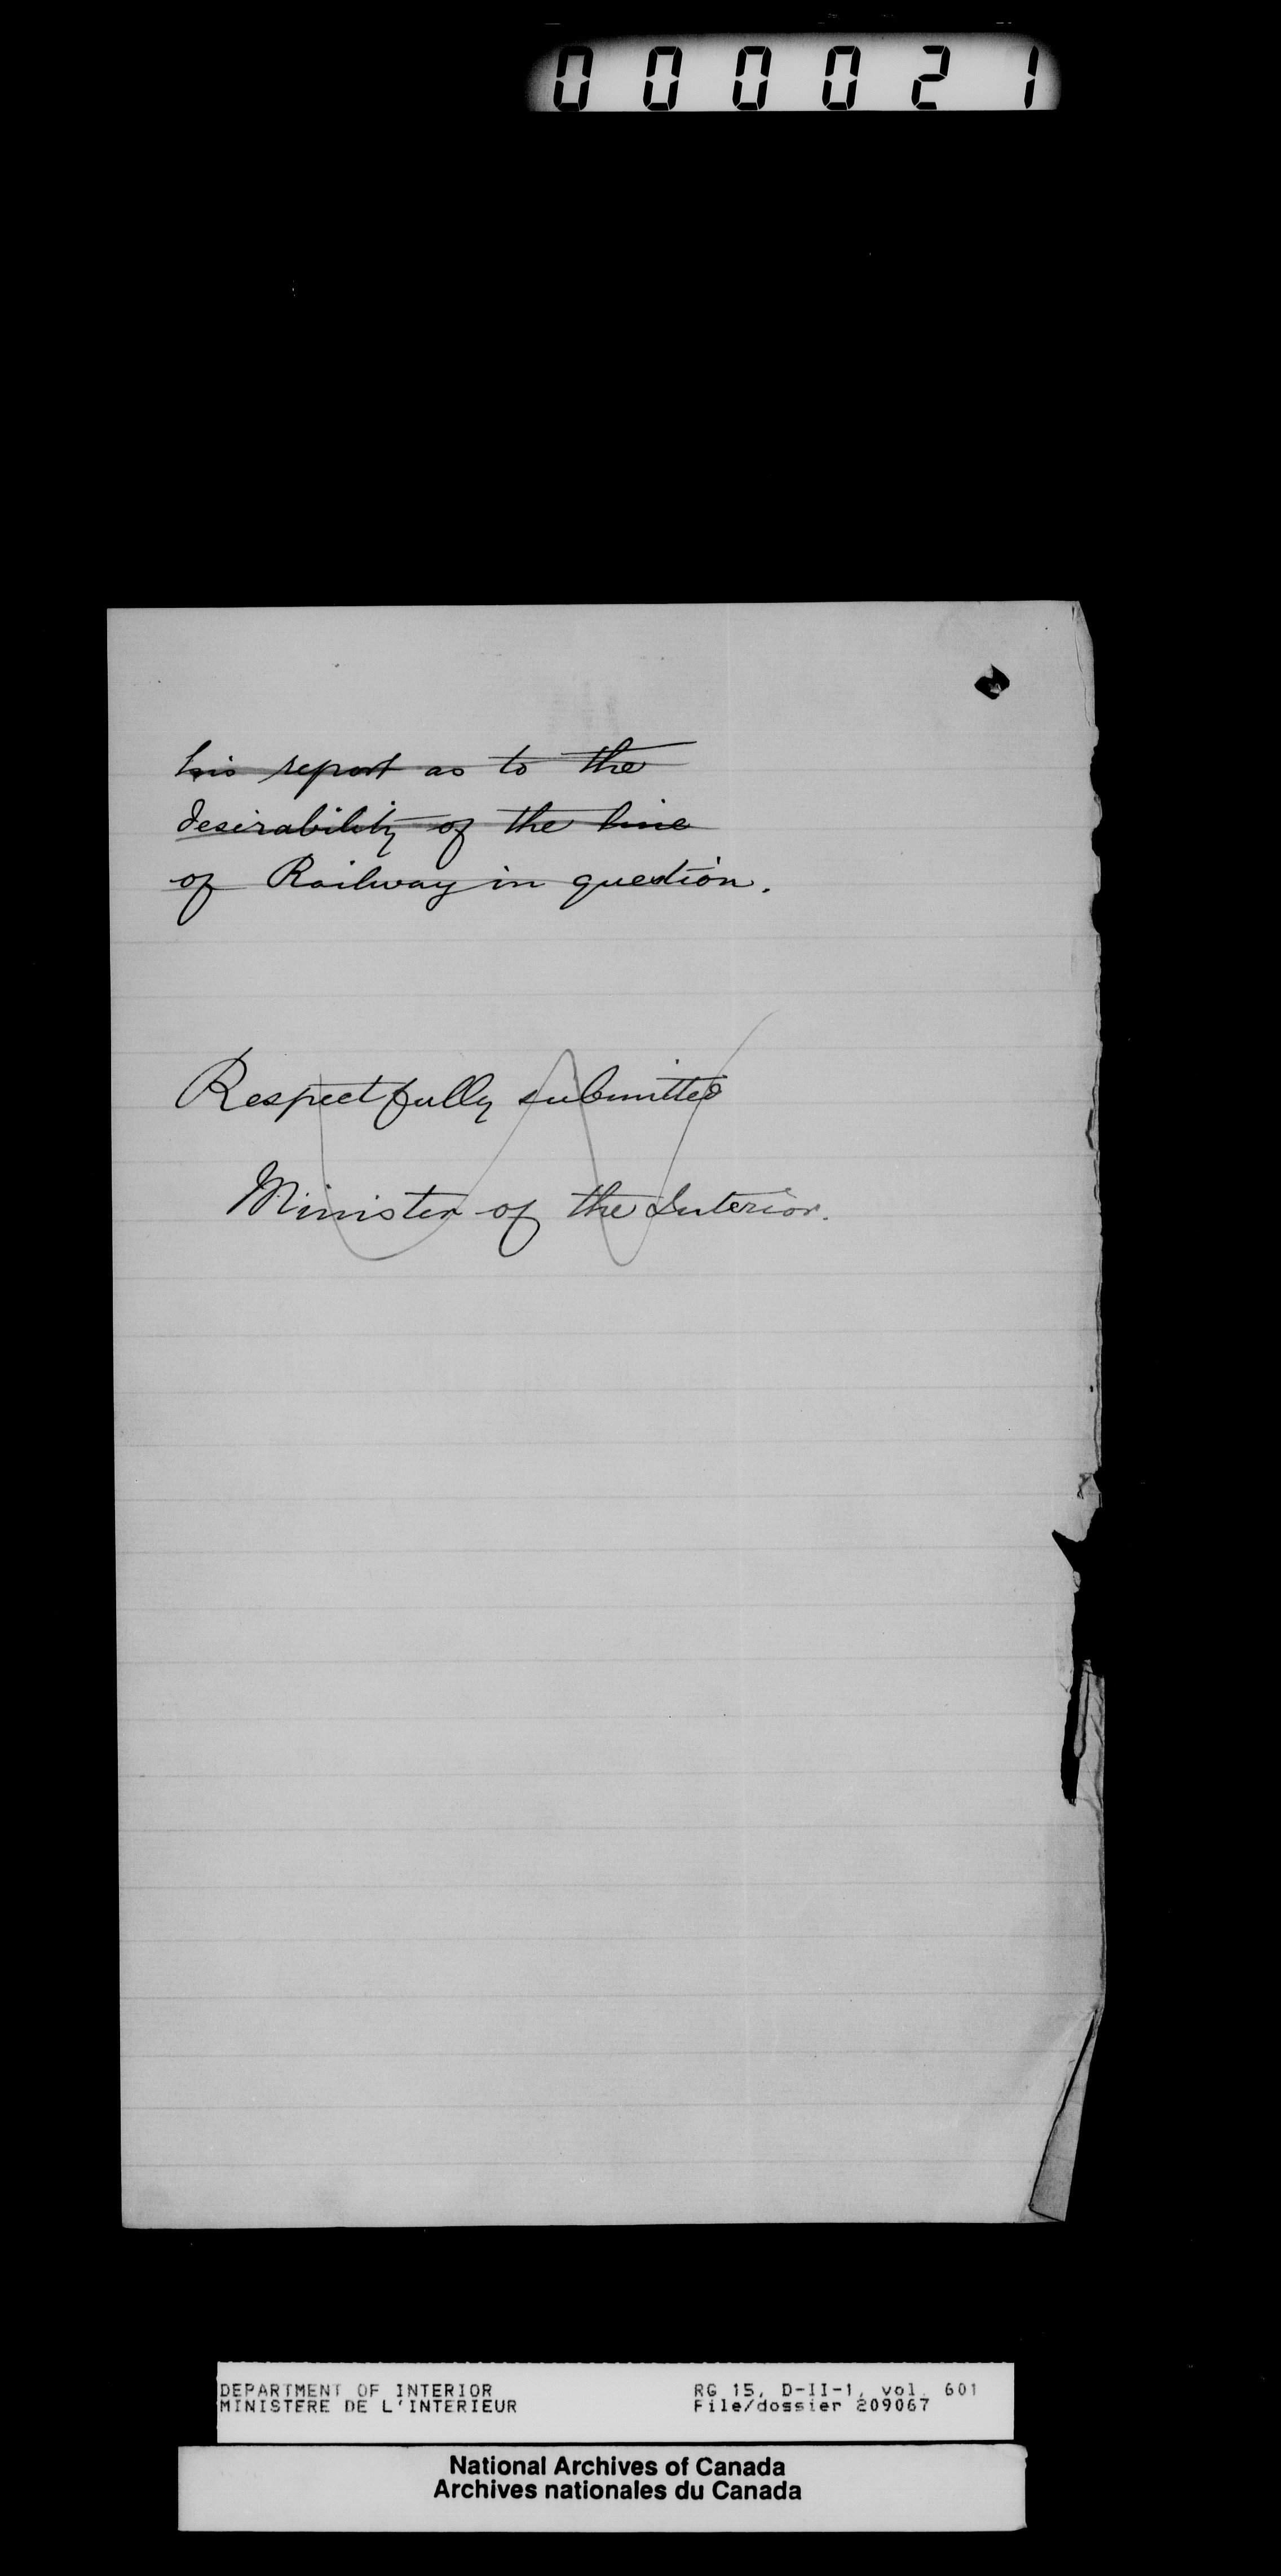 000021
his report as to the
desirability of the line
of Railway in question.
Respectfully submitted
Minister of the Interior.
DEPARTMENT OF INTERIOR RG 15, D-II-1, vol. 601
MINISTERE DE L'INTERIEUR File/dossier 209067
National Archives of Canada
Archives nationales du Canada